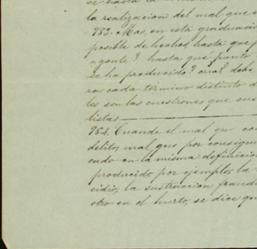 la realizacion del mal que
782. Mas, en esta graduacion
posible de
agente? hasta que punto
se ha producido? cual debe
ra cada termino distinto d
les son las cuestiones que sus
listas.
784. Cuando el mal que con
delito, mal que por consigui
endo en la misma definicion
producido por ejemplo, la
cidio, la sustraccion fraud
otro en el hurto, se dice qu